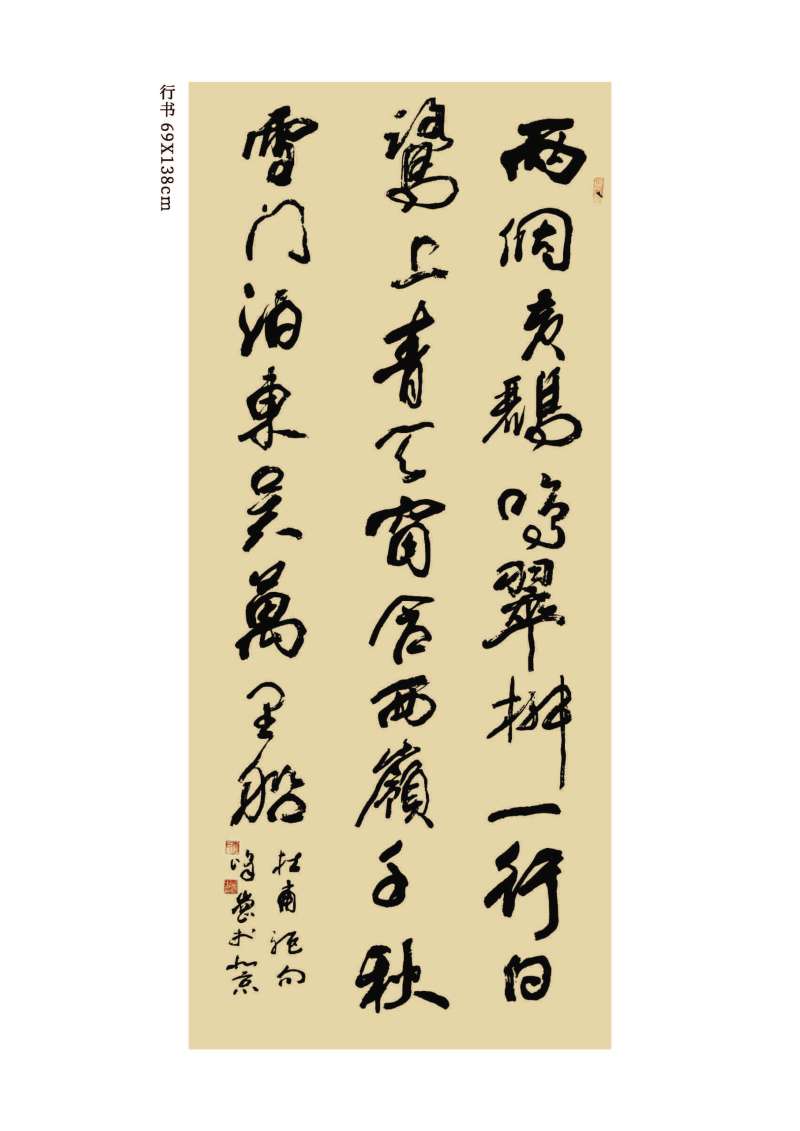 兩個黃鸝鳴翠柳一行白
鷺上青天窗含西嶺千秋
雪门泊東吴萬里船
杜甫絕句
峰書於北京
行书 69X138cm